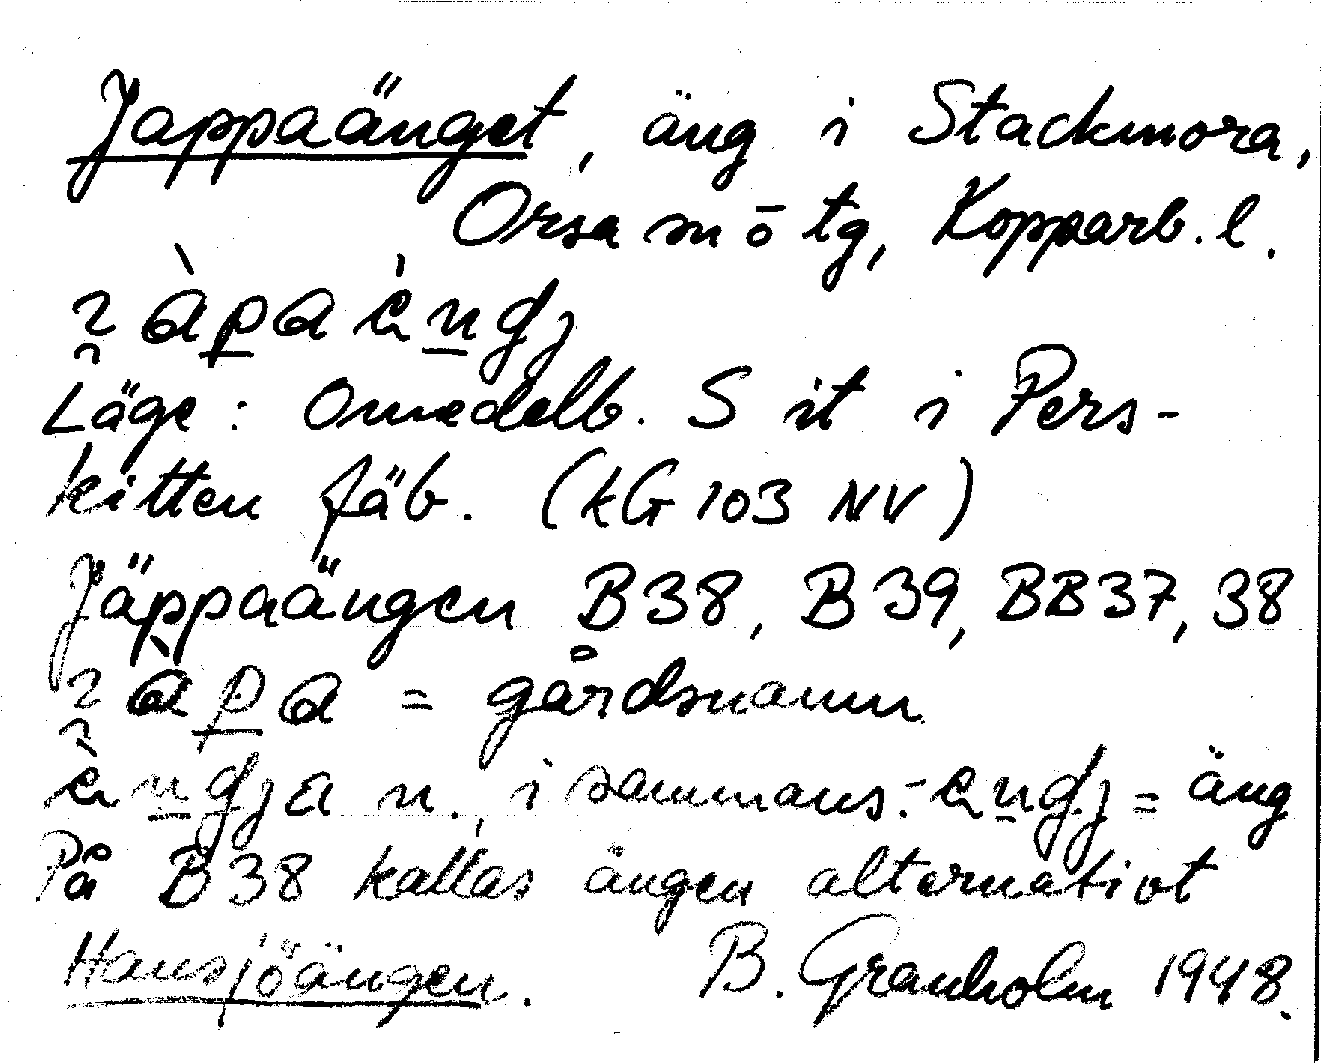 Jappaänget, äng i Stackmora,
Orsa sn ō tg, Kopparb. l.
Läge: Omedelb. S it i Pers-
kitten fäb. (kG 103 NV)
Jäppaängen B38, B39, BB37, 38
= gårdsnamn
n. i sammans. = äng
På B38 kallas ängen alternativt
Hansjöängen. B. Granholm 1948.